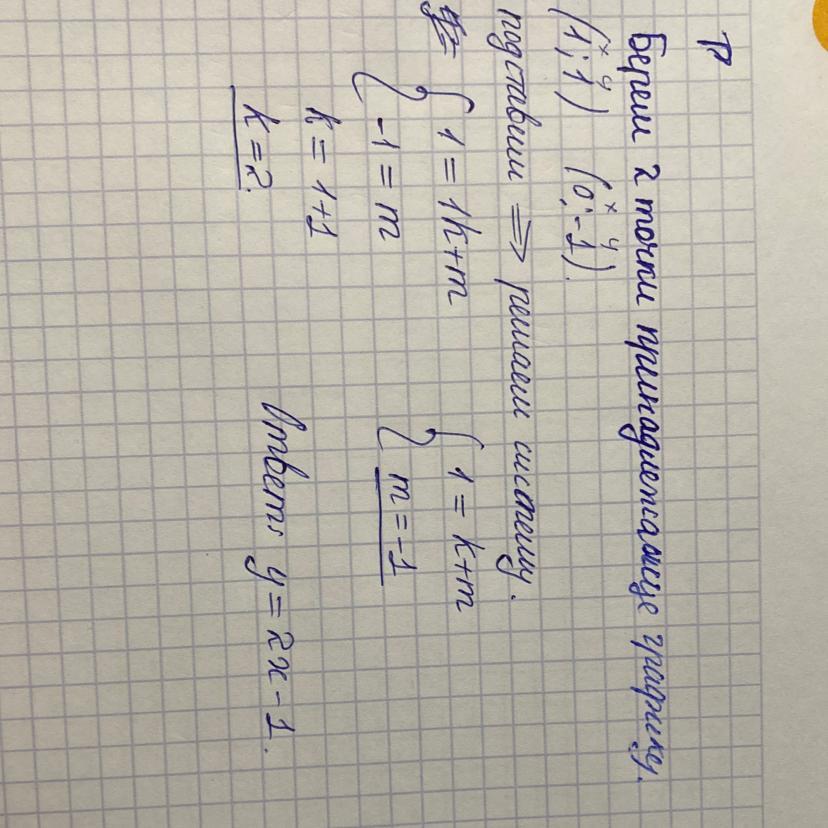 Р
Берем 2 точки принадлежащие графику.
x y x y
(1; 1) (0; -1).
подставим => решаем систему.
{ 1 = 1k+m { 1 = k+m
-1 = m m = -1
k = 1+1
k = 2. Ответ: y = 2x - 1.